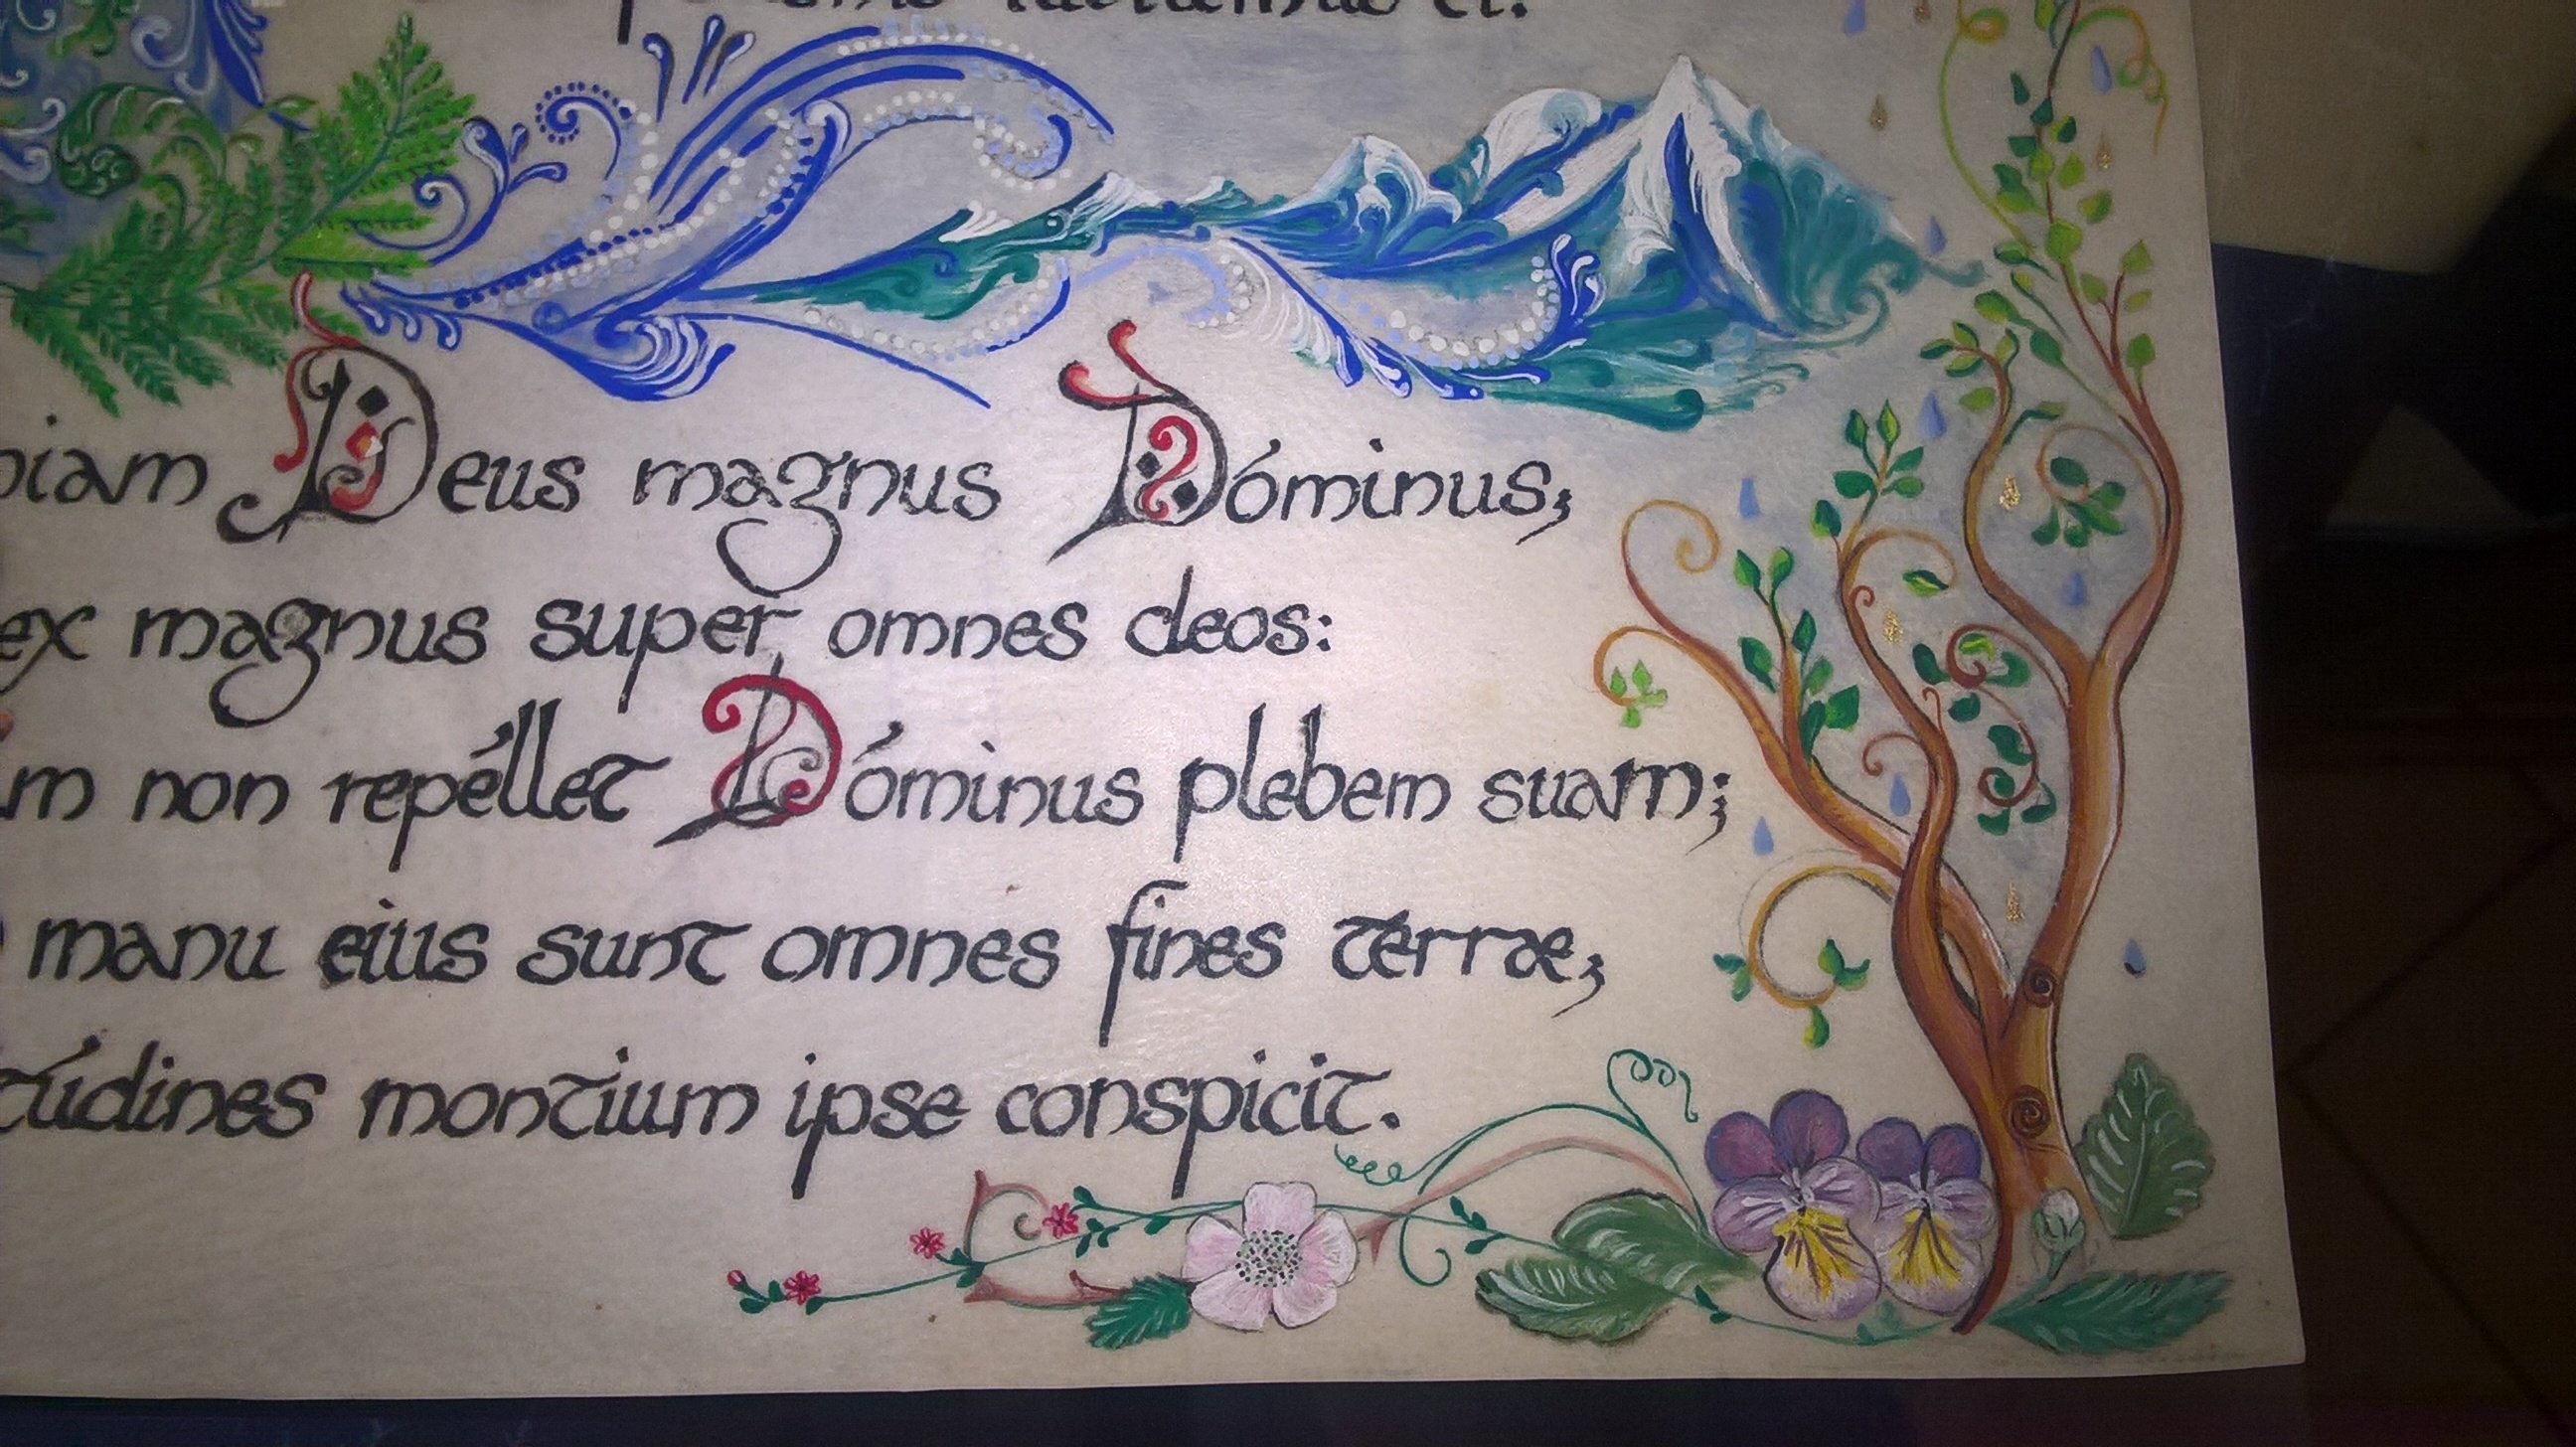 jubilemus ei.
niam Deus magnus Dóminus;
ex magnus super omnes deos:
m non repéllet Dóminus plebem suam;
manu eius sunt omnes fines terræ;
túdines montium ipse conspicit.